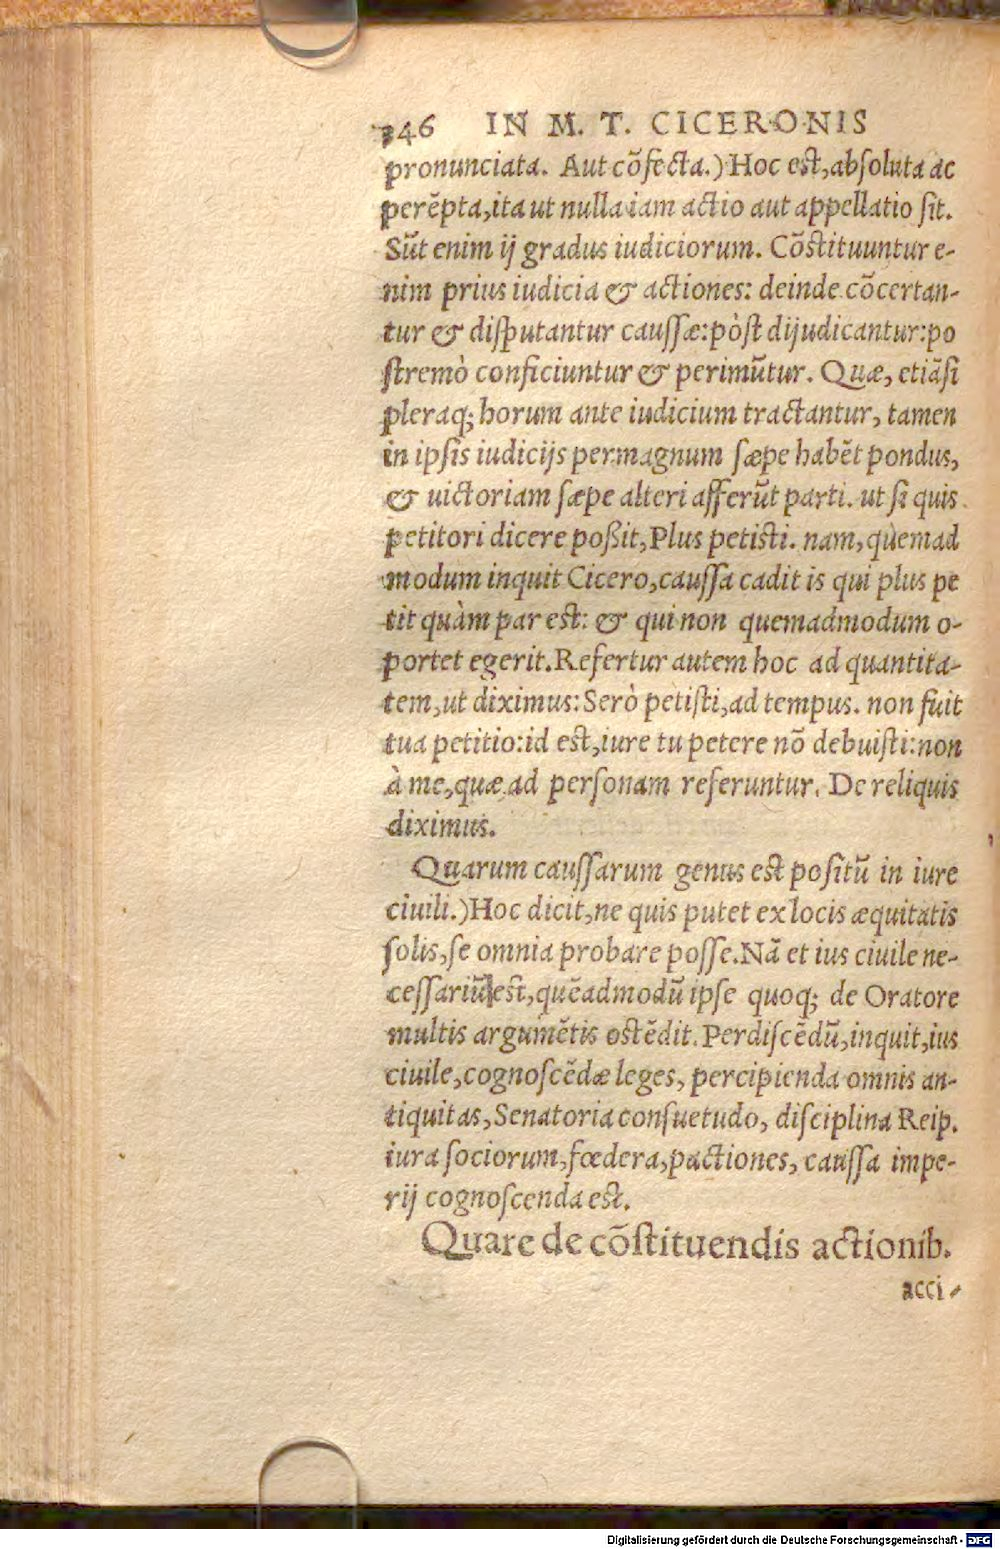 346 IN M. T. CICERONIS
pronunciata. Aut cõfecta.) Hoc est, absoluta ac
perẽpta, ita ut nulla iam actio aut appellatio sit.
Sũt enim ij gradus iudiciorum. Cõstituuntur e-
nim prius iudicia & actiones: deinde cõcertan-
tur & disputantur caussæ: pòst dijudicantur: po
stremò conficiuntur & perimũtur. Quæ, etiãsi
pleraq; horum ante iudicium tractantur, tamen
in ipsis iudicijs permagnum sæpe habẽt pondus,
& uictoriam sæpe alteri afferũt parti. ut si quis
petitori dicere poßit, Plus petisti. nam, quemad
modum inquit Cicero, caussa cadit is qui plus pe
tit quàm par est: & qui non quemadmodum o-
portet egerit. Refertur autem hoc ad quantita-
tem, ut diximus: Serò petisti, ad tempus. non fuit
tua petitio: id est, iure tu petere nõ debuisti: non
à me, quæ ad personam referuntur. De reliquis
diximus.
Quarum caussarum genus est positũ in iure
ciuili.) Hoc dicit, ne quis putet ex locis æquitatis
solis, se omnia probare posse. Nã et ius ciuile ne-
cessariũ est, quẽadmodũ ipse quoq; de Oratore
multis argumẽtis ostẽdit. Perdiscẽdũ, inquit, ius
ciuile, cognoscẽdæ leges, percipienda omnis an-
tiquitas, Senatoria consuetudo, disciplina Reip.
iura sociorum, fœdera, pactiones, caussa impe-
rij cognoscenda est.
Quare de cõstituendis actionib.
acci-
Digitalisierung gefördert durch die Deutsche Forschungsgemeinschaft - DFG